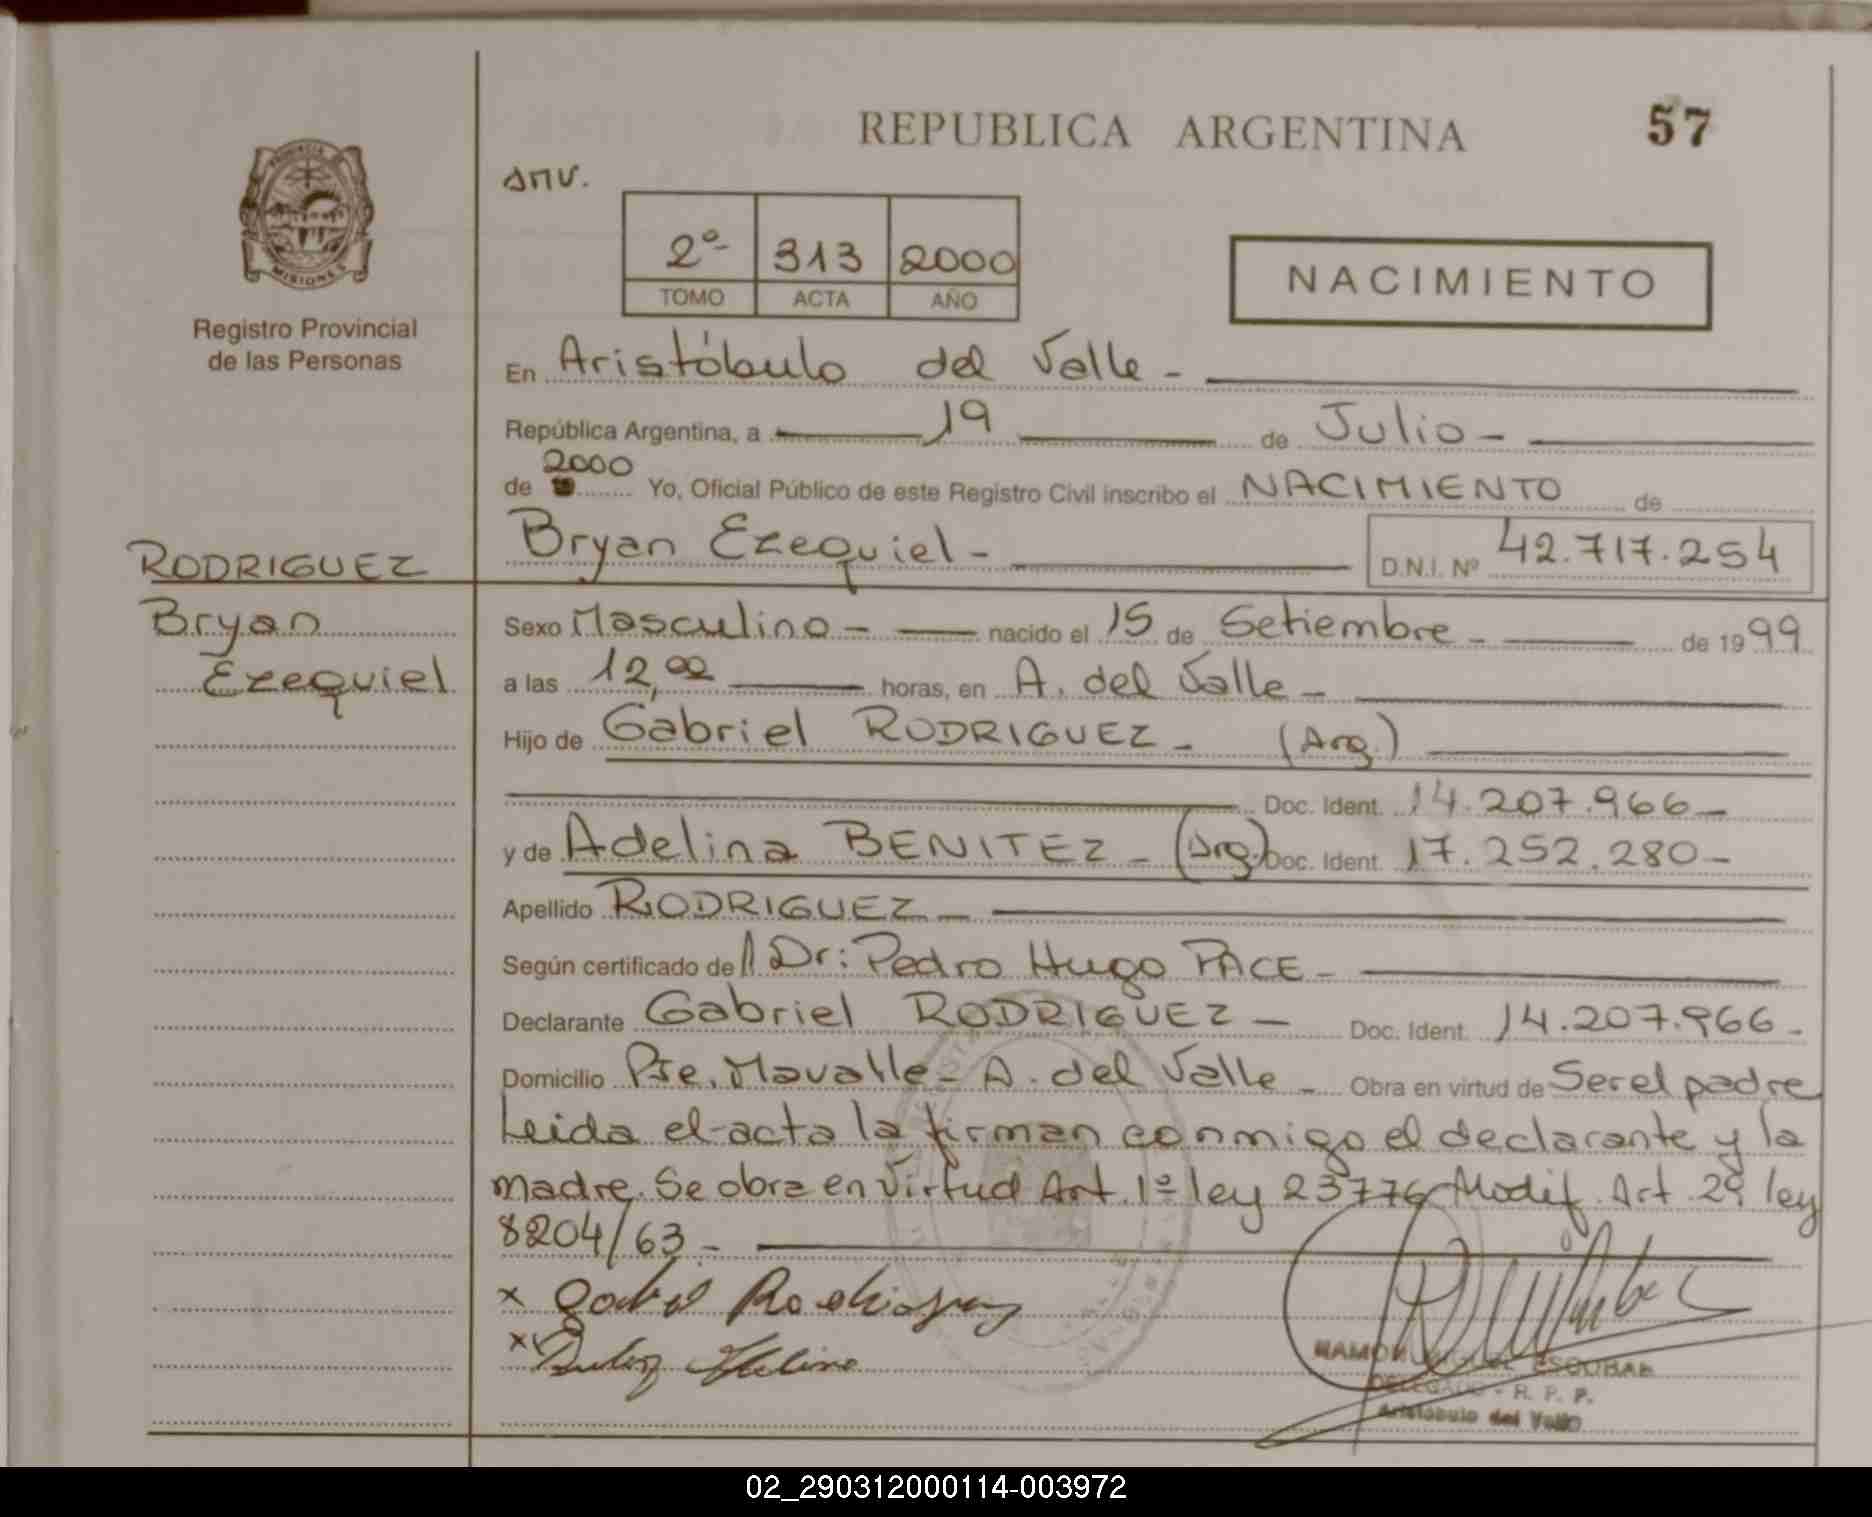 REPUBLICA ARGENTINA
57
PROVINCIA DE
MISIONES
Registro Provincial
de las Personas
2º 313 2000
TOMO ACTA AÑO
NACIMIENTO
En Aristóbulo del Valle -
República Argentina, a 19 de Julio -
2000
de Yo, Oficial Público de este Registro Civil inscribo el NACIMIENTO de
Bryan Ezequiel - D.N.I. Nº 42.717.254
RODRIGUEZ
Bryan
Ezequiel
Sexo Masculino - nacido el 15 de Setiembre - de 1999
a las 12,00 horas, en A. del Valle -
Hijo de Gabriel RODRIGUEZ - (Arg.)
Doc. Ident. 14.207.966 -
y de Adelina BENITEZ - (Arg.) Doc. Ident. 17.252.280 -
Apellido RODRIGUEZ -
Según certificado del Dr: Pedro Hugo PACE -
Declarante Gabriel RODRIGUEZ - Doc. Ident. 14.207.966 -
Domicilio Pje. Mavalle - A. del Valle - Obra en virtud de Ser el padre
Leida el acta la firman conmigo el declarante y la
madre. Se obra en Virtud Art. 1º ley 23776 Modif. Art. 29 ley
8204/63 -
x Gabriel Rodriguez
x
RAMON MIGUEL ESCOBAR
DELEGADO - R. P. P.
Aristóbulo del Valle
02_290312000114-003972